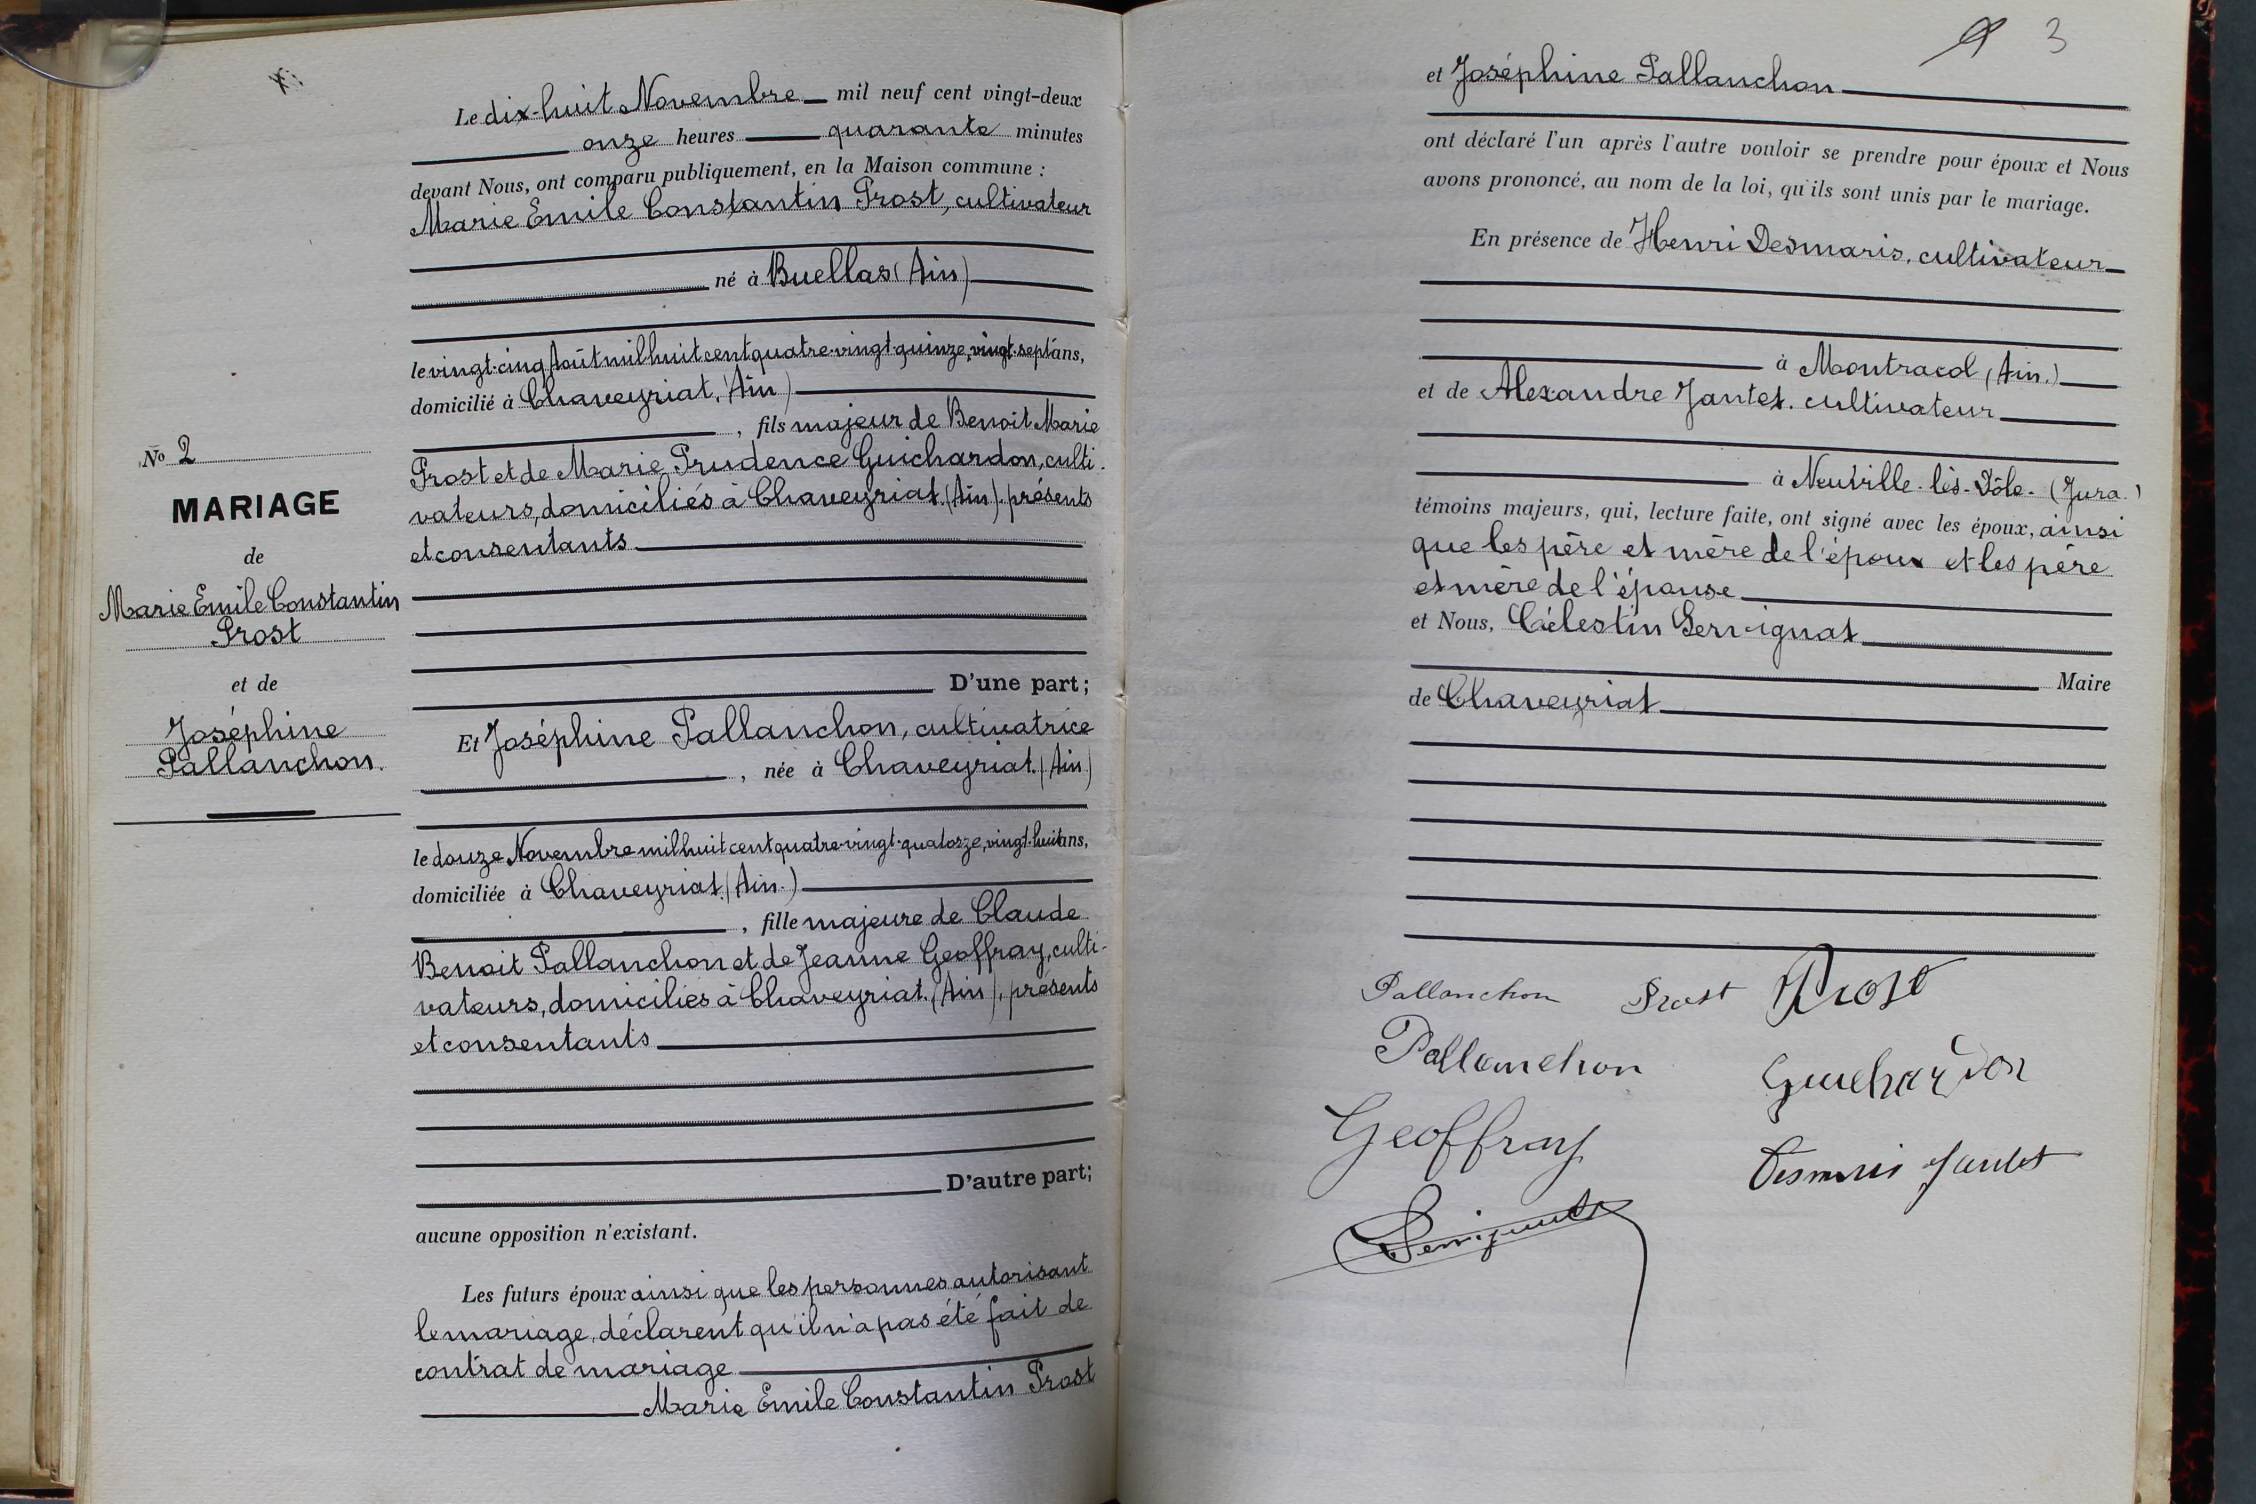 Le dix-huit Novembre mil neuf cent vingt-deux
onze heures quarante minutes
devant Nous, ont comparu publiquement, en la Maison commune :
Marie Emile Constantin Prost, cultivateur
né à Buellas (Ain)
le vingt-cinq Août mil huit cent quatre-vingt-quinze, vingt-sept ans,
domicilié à Chaveyriat, (Ain)
, fils majeur de Benoit Marie
Prost et de Marie Prudence Guichardon, culti-
vateurs, domiciliés à Chaveyriat. (Ain). présents
et consentants
No 2
MARIAGE
de
Marie Emile Constantin
Prost
et de
Joséphine
Pallanchon.
D'une part;
Et Joséphine Pallanchon, cultivatrice
, née à Chaveyriat. (Ain)
le douze Novembre mil huit cent quatre-vingt-quatorze, vingt-huit ans,
domiciliée à Chaveyriat. (Ain.)
, fille majeure de Claude
Benoit Pallanchon et de Jeanne Geoffray, culti-
vateurs, domiciliés à Chaveyriat. (Ain), présents
et consentants
D'autre part;
aucune opposition n'existant.
Les futurs époux ainsi que les personnes autorisant
le mariage, déclarent qu'il n'a pas été fait de
contrat de mariage
Marie Emile Constantin Prost
3
et Joséphine Pallanchon
ont déclaré l'un après l'autre vouloir se prendre pour époux et Nous
avons prononcé, au nom de la loi, qu'ils sont unis par le mariage.
En présence de Henri Desmaris, cultivateur
à Montracol (Ain.)
et de Alexandre Jantet. cultivateur
à Neuville-lès-Dôle. (Jura.)
témoins majeurs, qui, lecture faite, ont signé avec les époux, ainsi
que les père et mère de l'époux et les père
et mère de l'épouse
et Nous, Célestin Servignat
Maire
de Chaveyriat
Pallanchon Prost Prost
Pallanchon Guichardon
Geoffray
Desmaris Jantet
Servignat